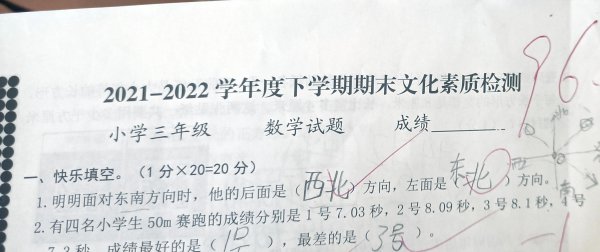 2021-2022学年度下学期期末文化素质检测
96
小学三年级 数学试题 成绩
一、快乐填空。（1分×20=20分）
1.明明面对东南方向时，他的后面是（西北）方向，左面是（东北）方向。
西
南
2.有四名小学生50m赛跑的成绩分别是1号7.03秒，2号8.09秒，3号8.1秒，4号
7.3秒，成绩最好的是（1号），最差的是（3号）。